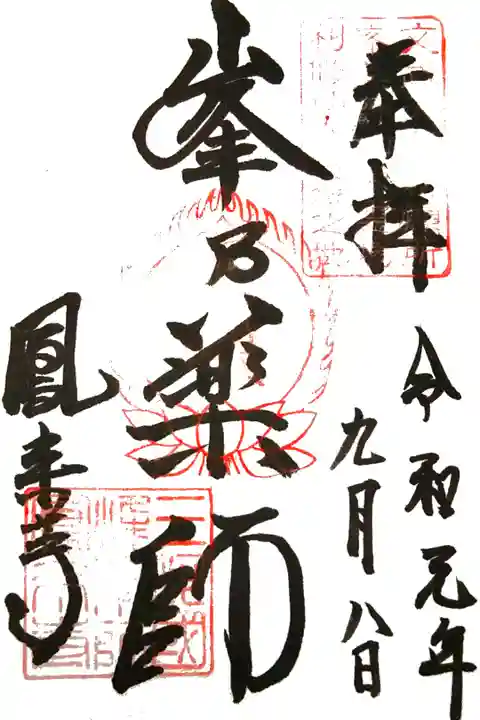 奉拝
令和元年
九月八日
峯乃薬師
鳳来寺